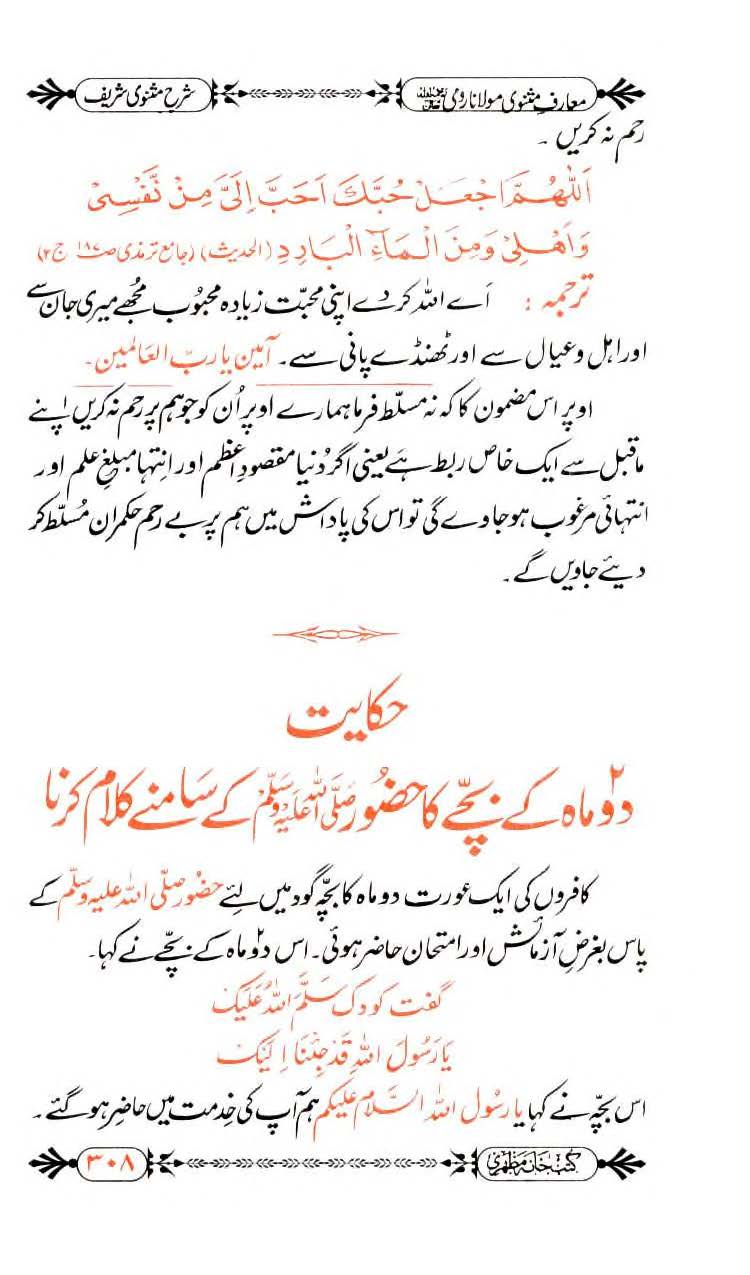 معارفِ مثنوی مولانا رومی شرح مثنوی شریف
رحم نہ کریں ۔
اَللّٰھُمَّ اجْعَلْ حُبَّكَ اَحَبَّ اِلَیَّ مِنْ نَّفْسِیْ
وَاَھْلِیْ وَمِنَ الْمَآءِ الْبَارِدِ (الحدیث) (جامع ترمذی صـ ۱۸۷ ج ۲)
ترجمہ : اَے اللہ کردے اپنی محبّت زیادہ محبوب مُجھے میری جان سے
اور اہل و عیال سے اور ٹھنڈے پانی سے۔ آمین یا ربّ العَالمین۔
اوپر اس مضمون کا کہ نہ مسلّط فرما ہمارے اوپر اُن کو جو ہم پر رحم نہ کریں اپنے
ماقبل سے ایک خاص ربط ہے یعنی اگر دُنیا مقصودِ اعظم اور اِنتہا مبلغِ علم اور
انتہائی مرغوب ہوجاوے گی تو اس کی پاداش میں ہم پر بے رحم حکمران مُسلّط کر
دیئے جاویں گے۔
حکایت
دو۲ ماہ کے بچّے کا حضُور صَلَّی اللہُ عَلَیْہِ وَسَلَّمْ کے سَامنے کلام کرنا
کافروں کی ایک عورت دو ماہ کا بچّہ گود میں لئے حضُور صلّی اللہ علیہ وسلّم کے
پاس بغرضِ آزمائش اور امتحان حاضر ہوئی۔ اس دو۲ ماہ کے بچّے نے کہا۔
گفت کودک سَلَّمَ اللّٰہُ عَلَیْكَ
یَا رَسُوْلَ اللّٰہِ قَدْ جِئْنَا اِلَیْكَ
اس بچّہ نے کہا یا رسُول اللہ السَّلام علیکم ہم آپ کی خِدمت میں حاضِر ہوگئے ۔
کتب خانہ مظہری ۳۰۸